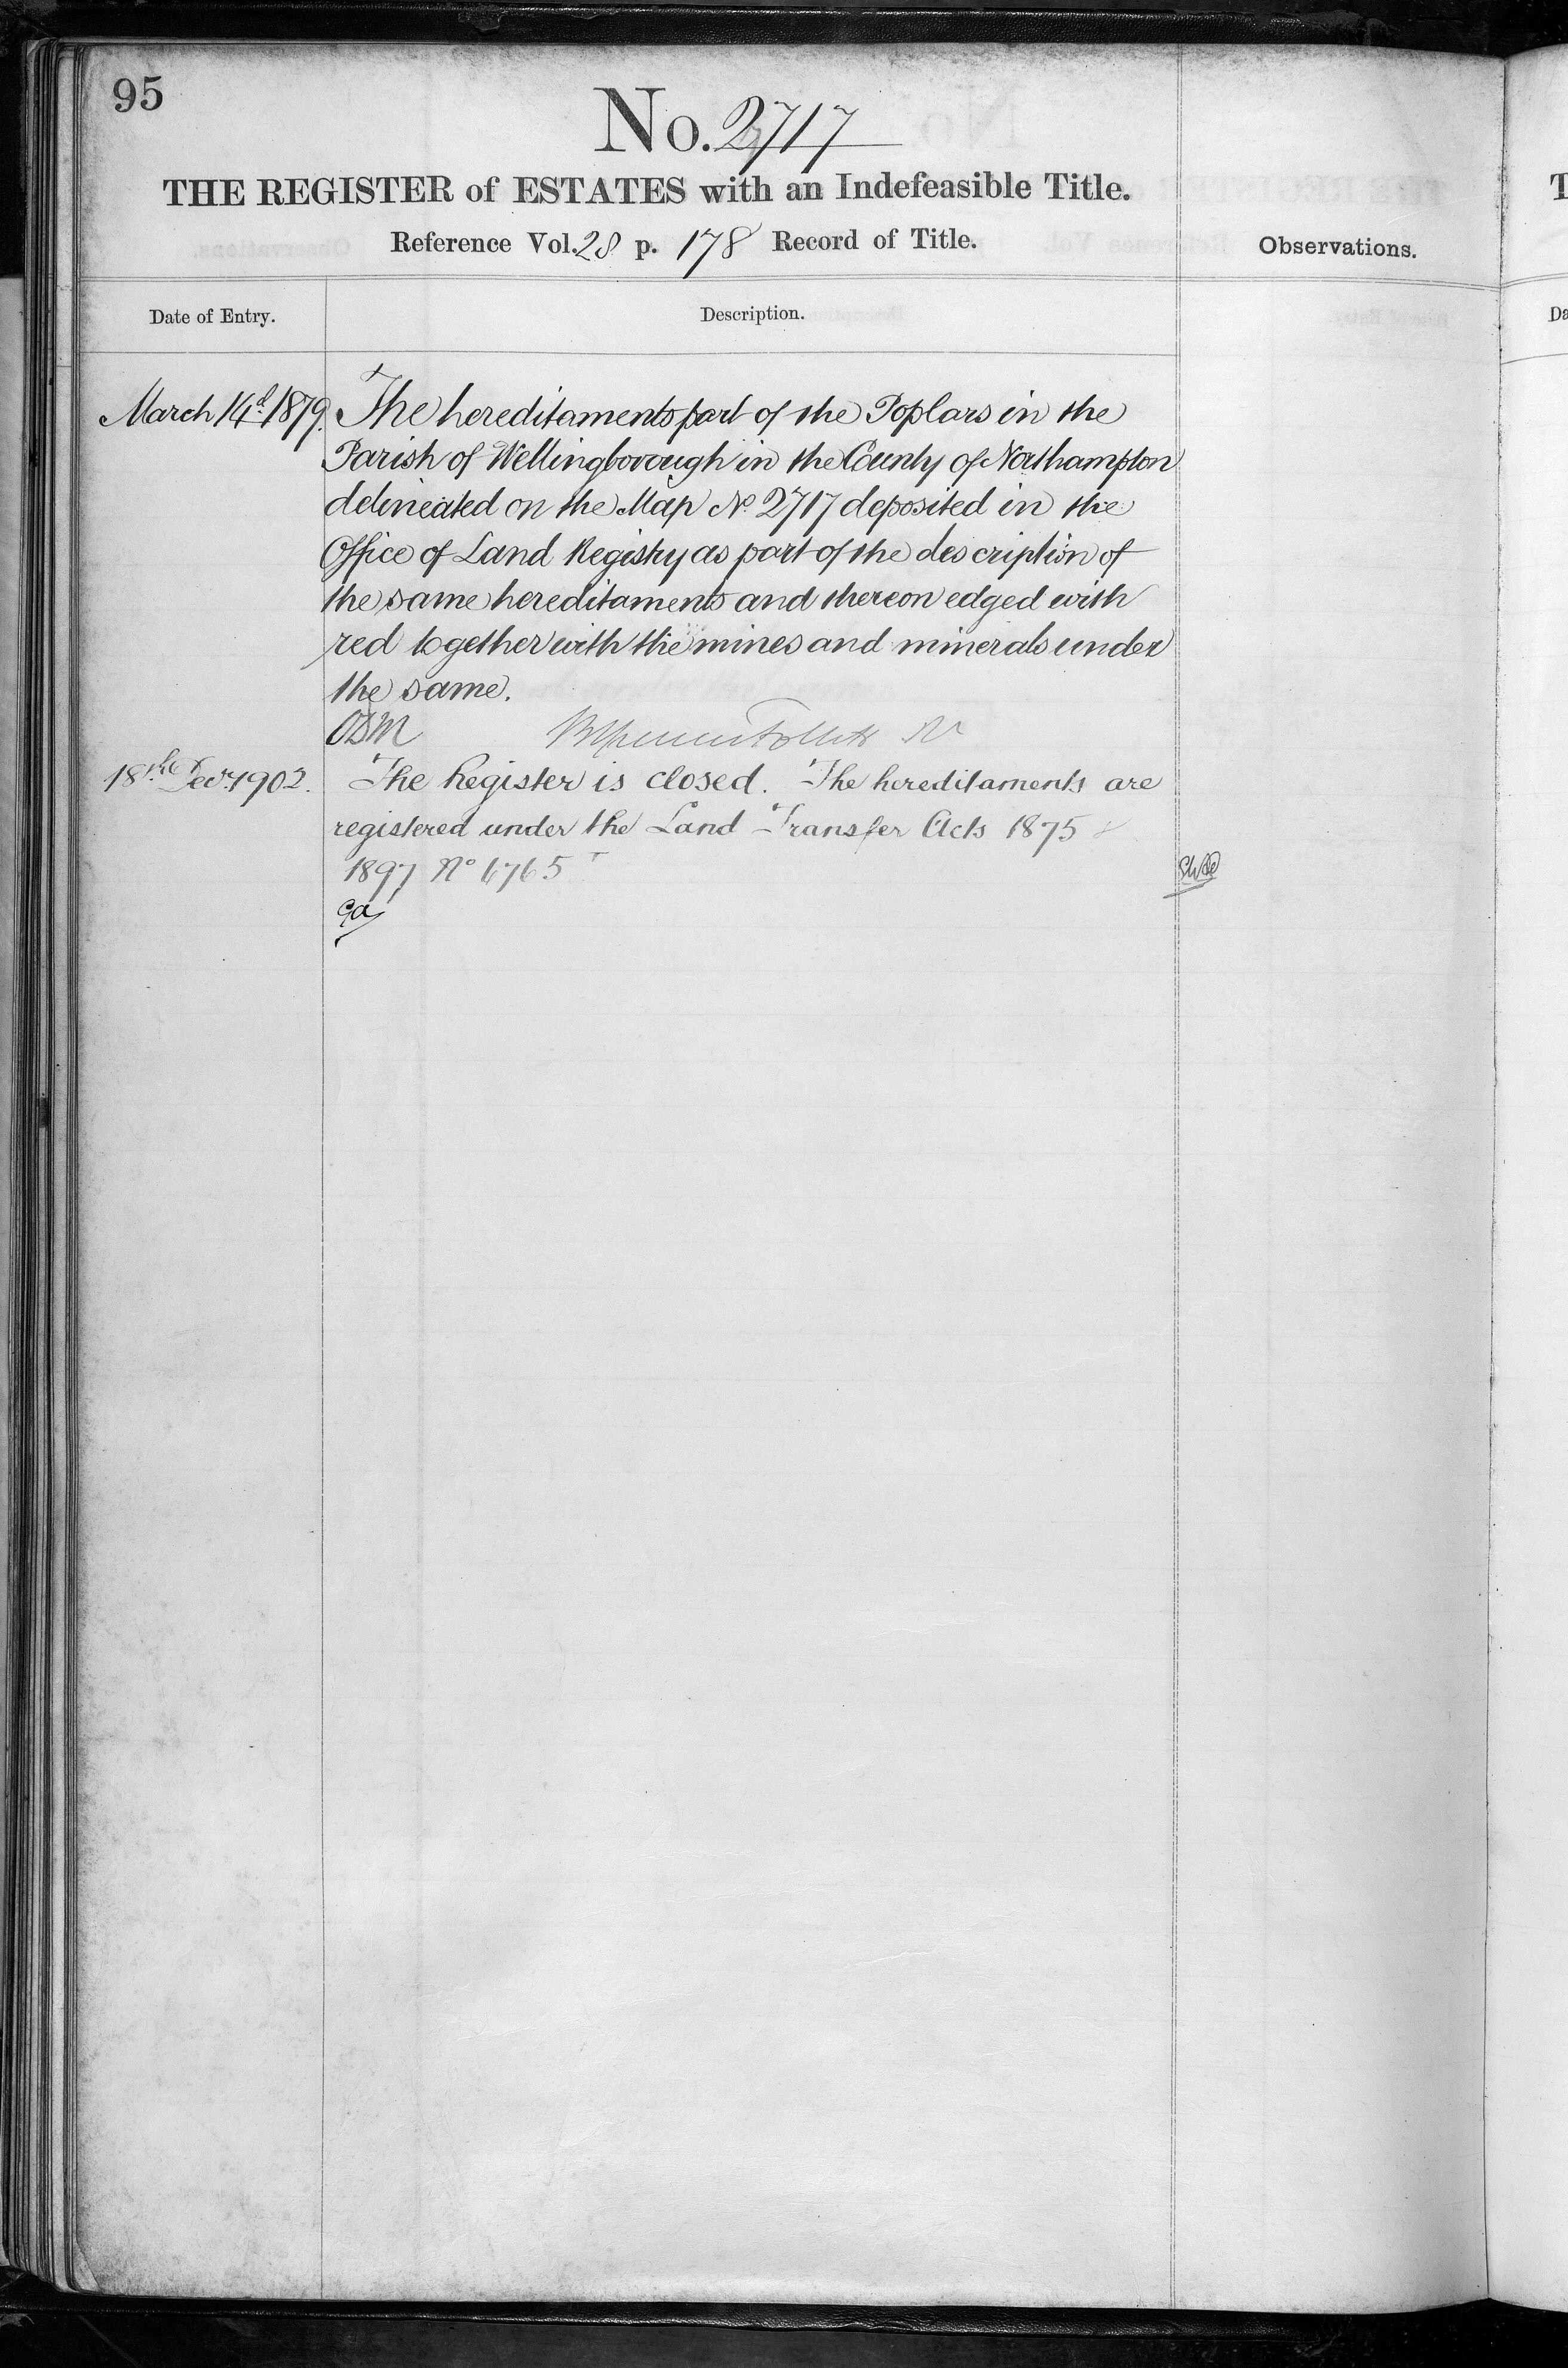 95
No. 2717
THE REGISTER of ESTATES with an Indefeasible Title.
Reference Vol. 28 p. 178 Record of Title.
Observations.
Date of Entry.
Description.
March 14th 1879. The hereditaments part of the Poplars in the
Parish of Wellingborough in the County of Northampton
delineated on the Map No. 2717 deposited in the
Office of Land Registry as part of the description of
the same hereditaments and thereon edged with
red together with the mines and minerals under
the same.
18th Decr. 1902. The Register is closed. The hereditaments are
registered under the Land Transfer Acts 1875 &
1897 No 6765